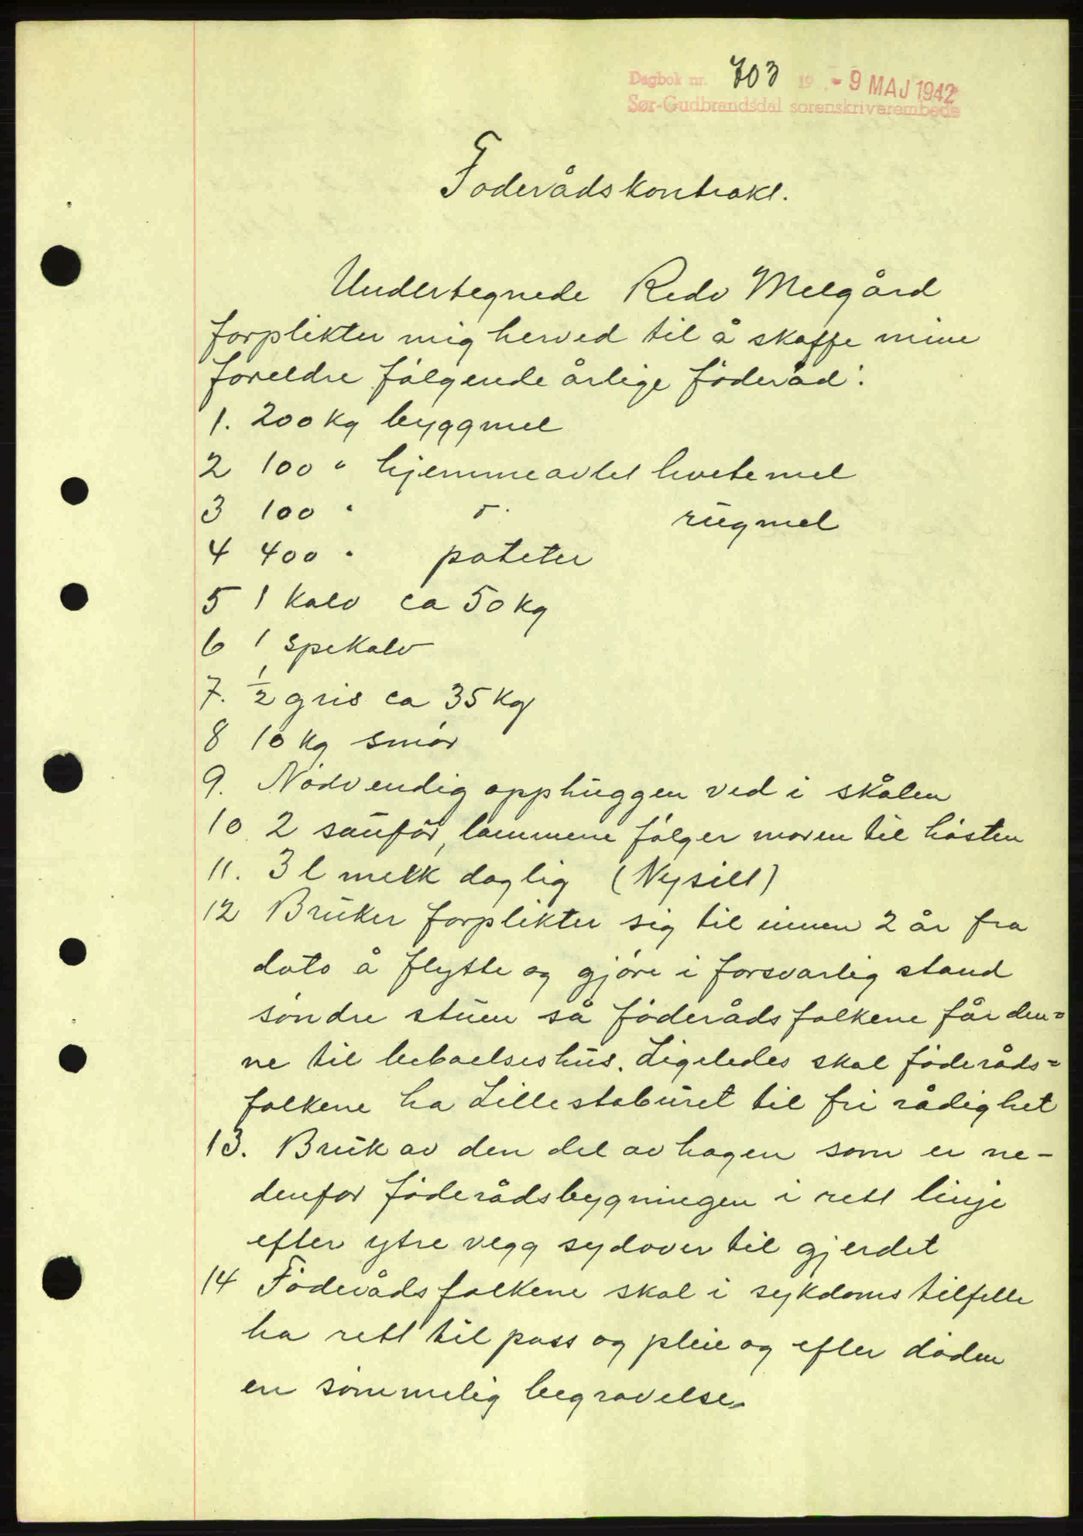 Dagbok nr. 703 19 - 9 MAJ 1942
Sør-Gudbrandsdal sorenskriverembede
Föderådskontrakt.
Undertegnede Redv Melgård
forplikter mig herved til å skaffe mine
foreldre følgende årlige föderåd:
1. 200 kg byggmel
2 100 " hjemmeavlet hvetemel
3 100 " " rugmel
4 400 " poteter
5 1 kalv ca 50 kg
6 1 spekalv
7. 1/2 gris ca 35 kg
8 10 kg smör
9. Nödvendig opphuggen ved i skålen
10. 2 saufór, lammene fölger moren til hösten
11. 3 l melk daglig (Nysilt)
12 Bruker forplikter sig til innen 2 år fra
dato å flytte og gjöre i forsvarlig stand
söndre stuen så föderådsfolkene får den=
ne til beboelseshus. Ligeledes skal föderåds=
folkene ha Lillestaburet til fri rådighet
13. Bruk av den del av hagen som er ne-
denfor föderådsbygningen i rett linje
efter ytre vegg sydover til gjerdet
14 Föderådsfolkene skal i sykdomstilfelle
ha rett til pass og pleie og efter döden
en sömmelig begravelse.